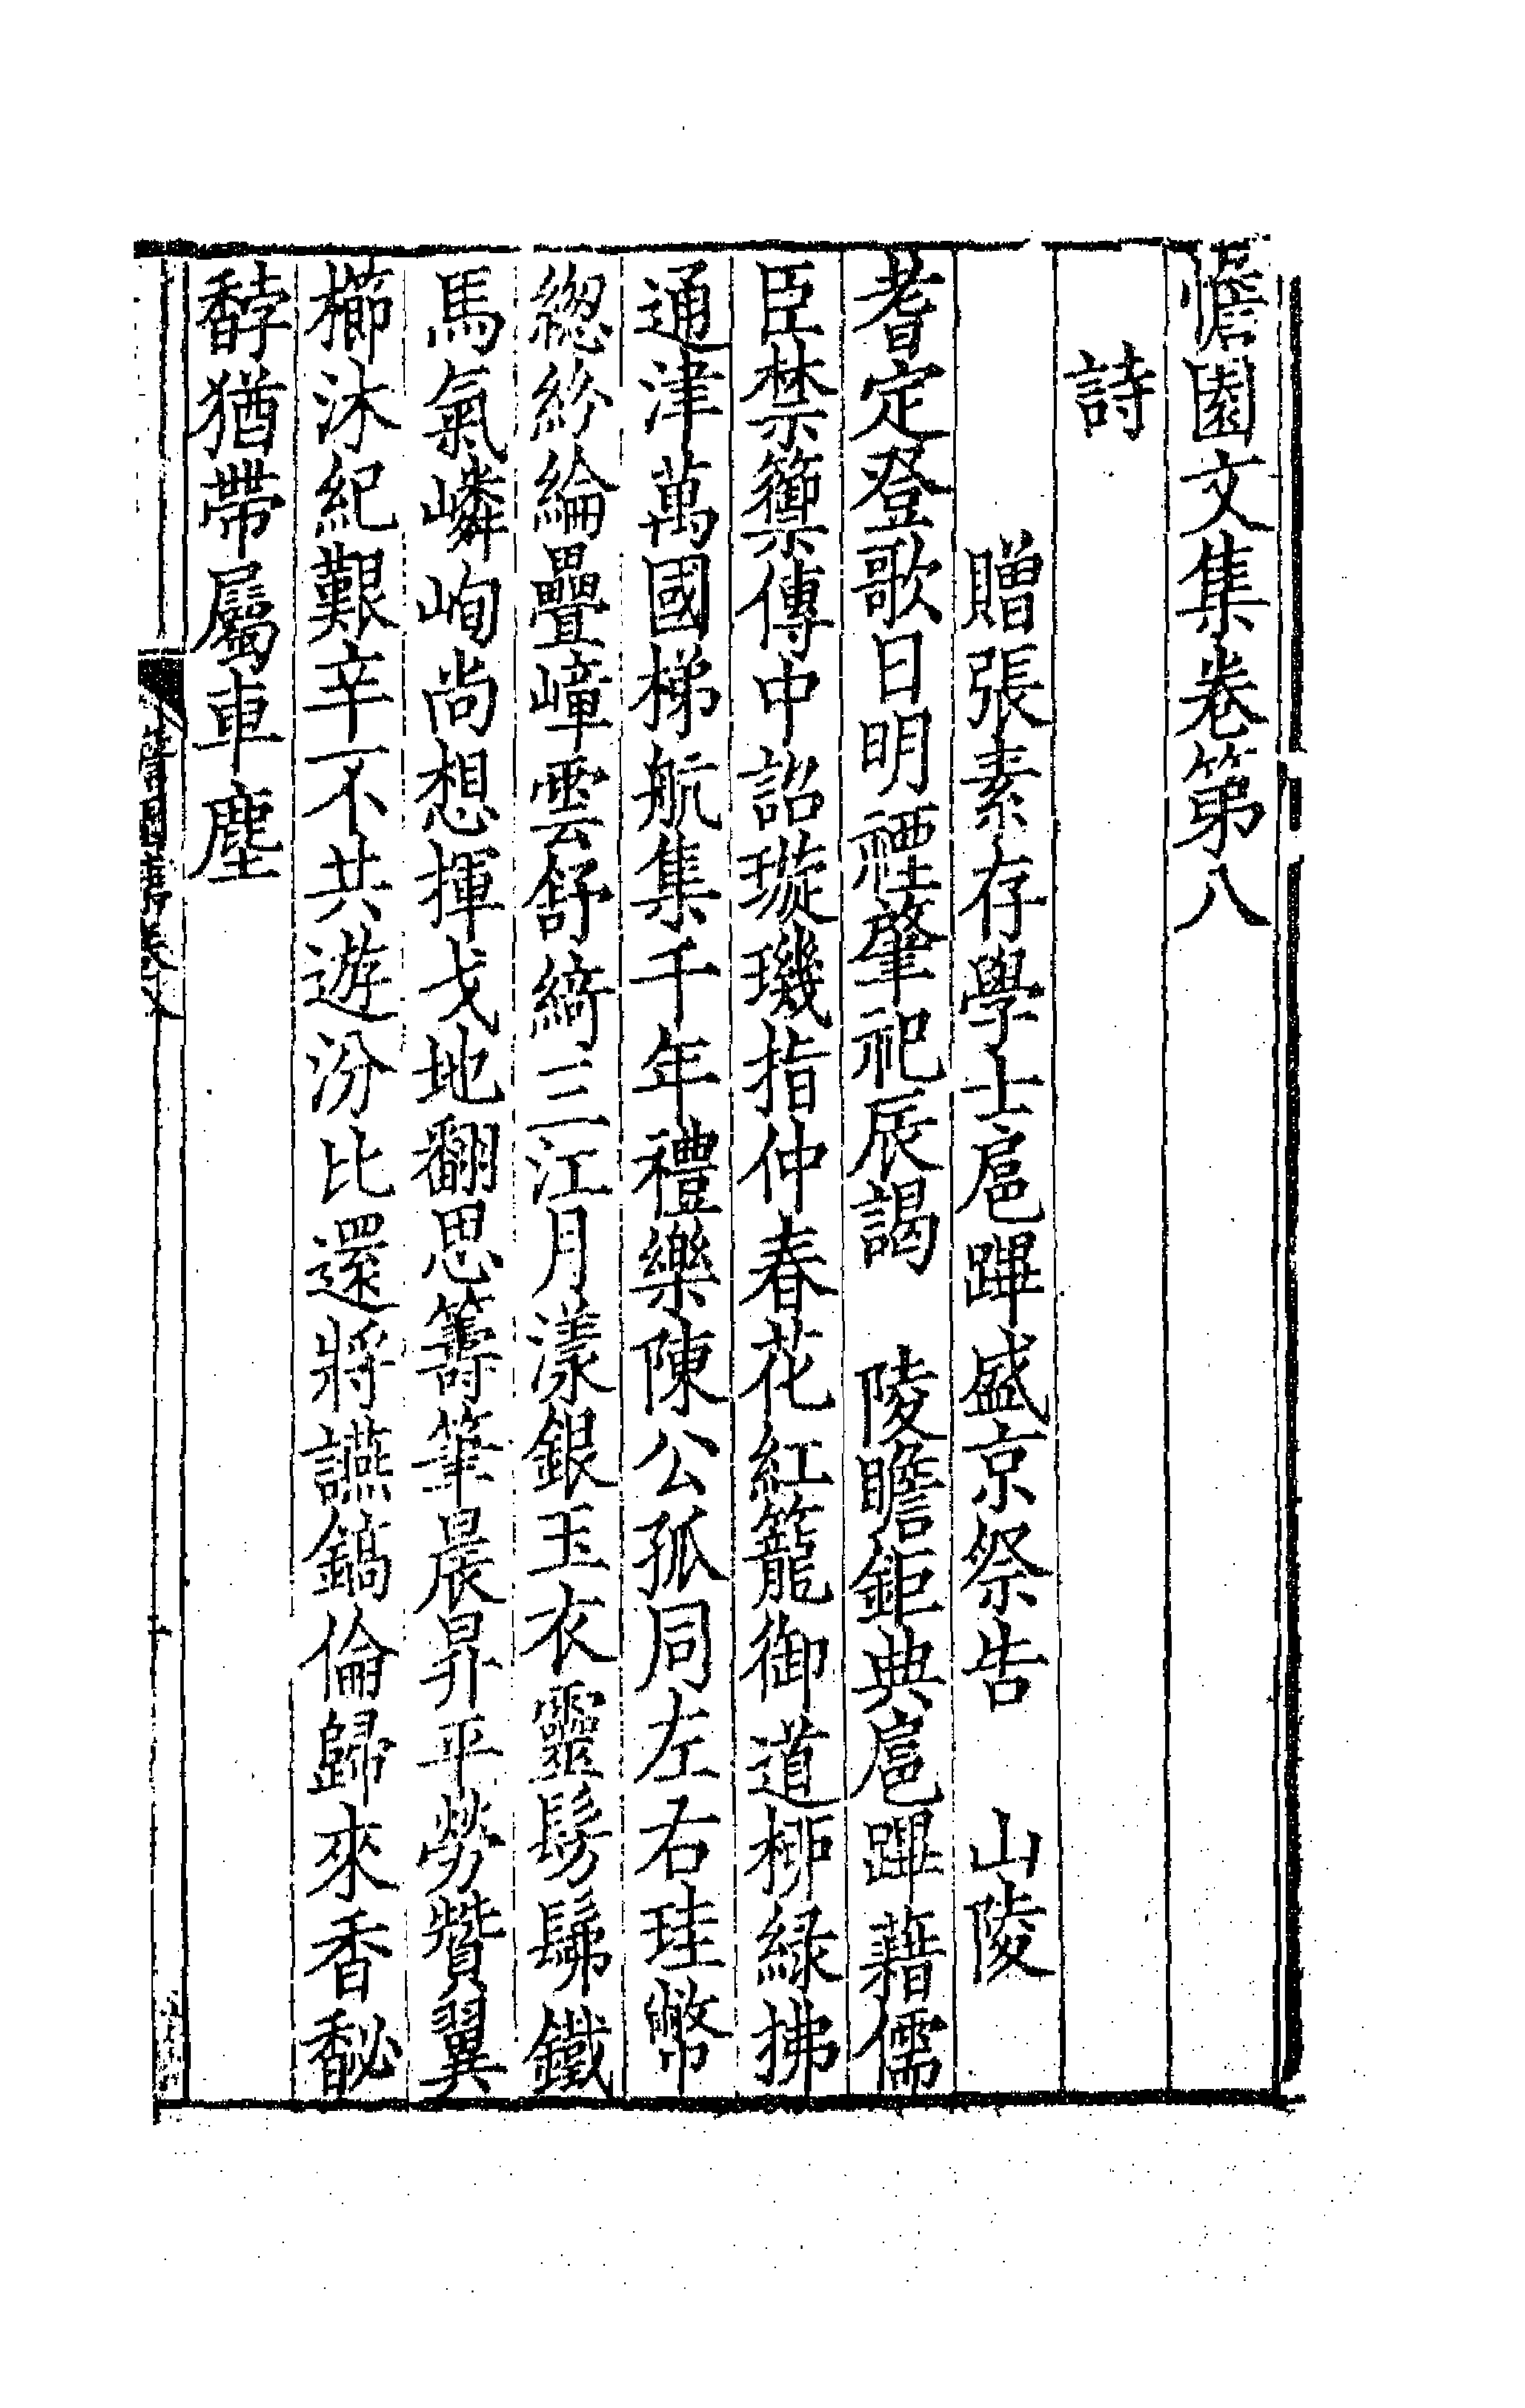 憺園文集卷第八
詩
贈張素存學士扈蹕盛京祭告　山陵
耆定登歌日明禋肇祀辰謁　陵瞻鉅典扈蹕藉儒
臣禁籞傳中詔璇璣指仲春花紅籠御道栁緑拂
通津萬國梯航集千年禮樂陳公孤同左右珪幣
緫紛綸疊嶂雲舒綺三江月漾銀玉衣靈髣髴鐵
馬氣嶙峋尚想揮戈地翻思籌筆晨昇平勞贊翼
櫛沐紀艱辛不共遊汾比還將讌鎬倫歸來香馝
馞猶帶屬車塵